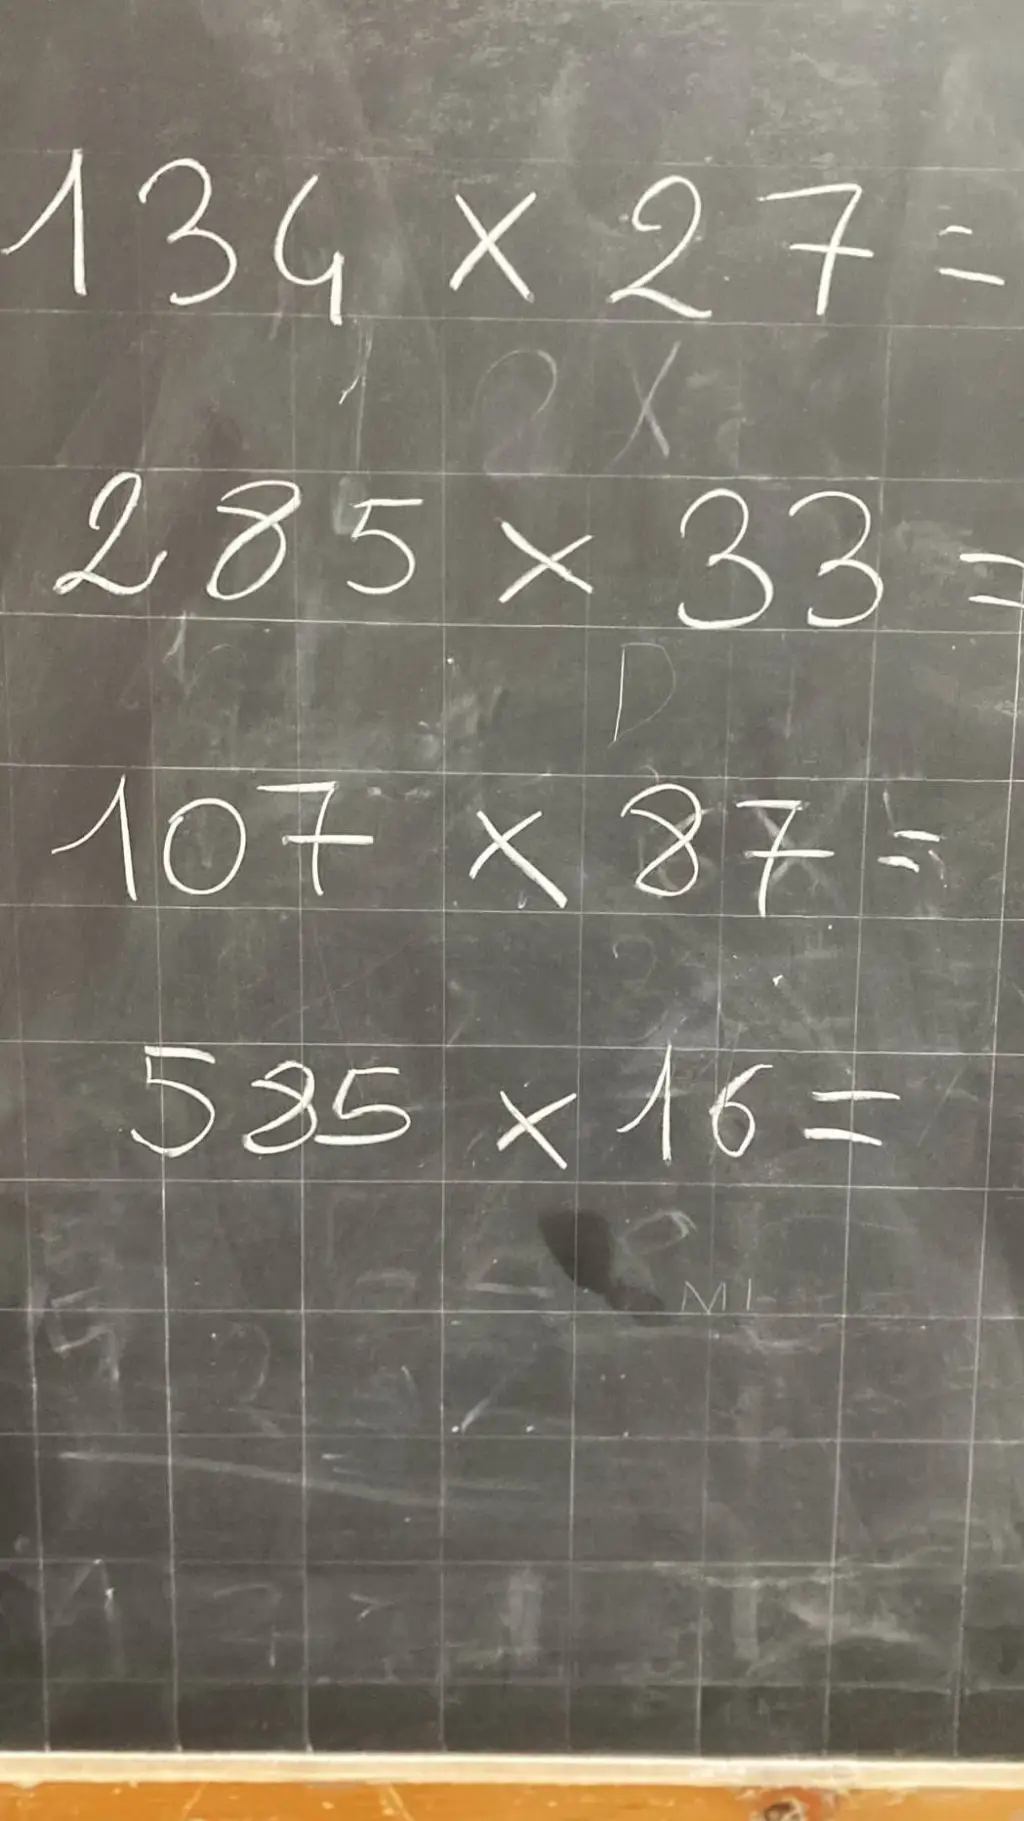 134 × 27 =
2 X
285 × 33 =
D
107 × 87 =
585 × 16 =
M1